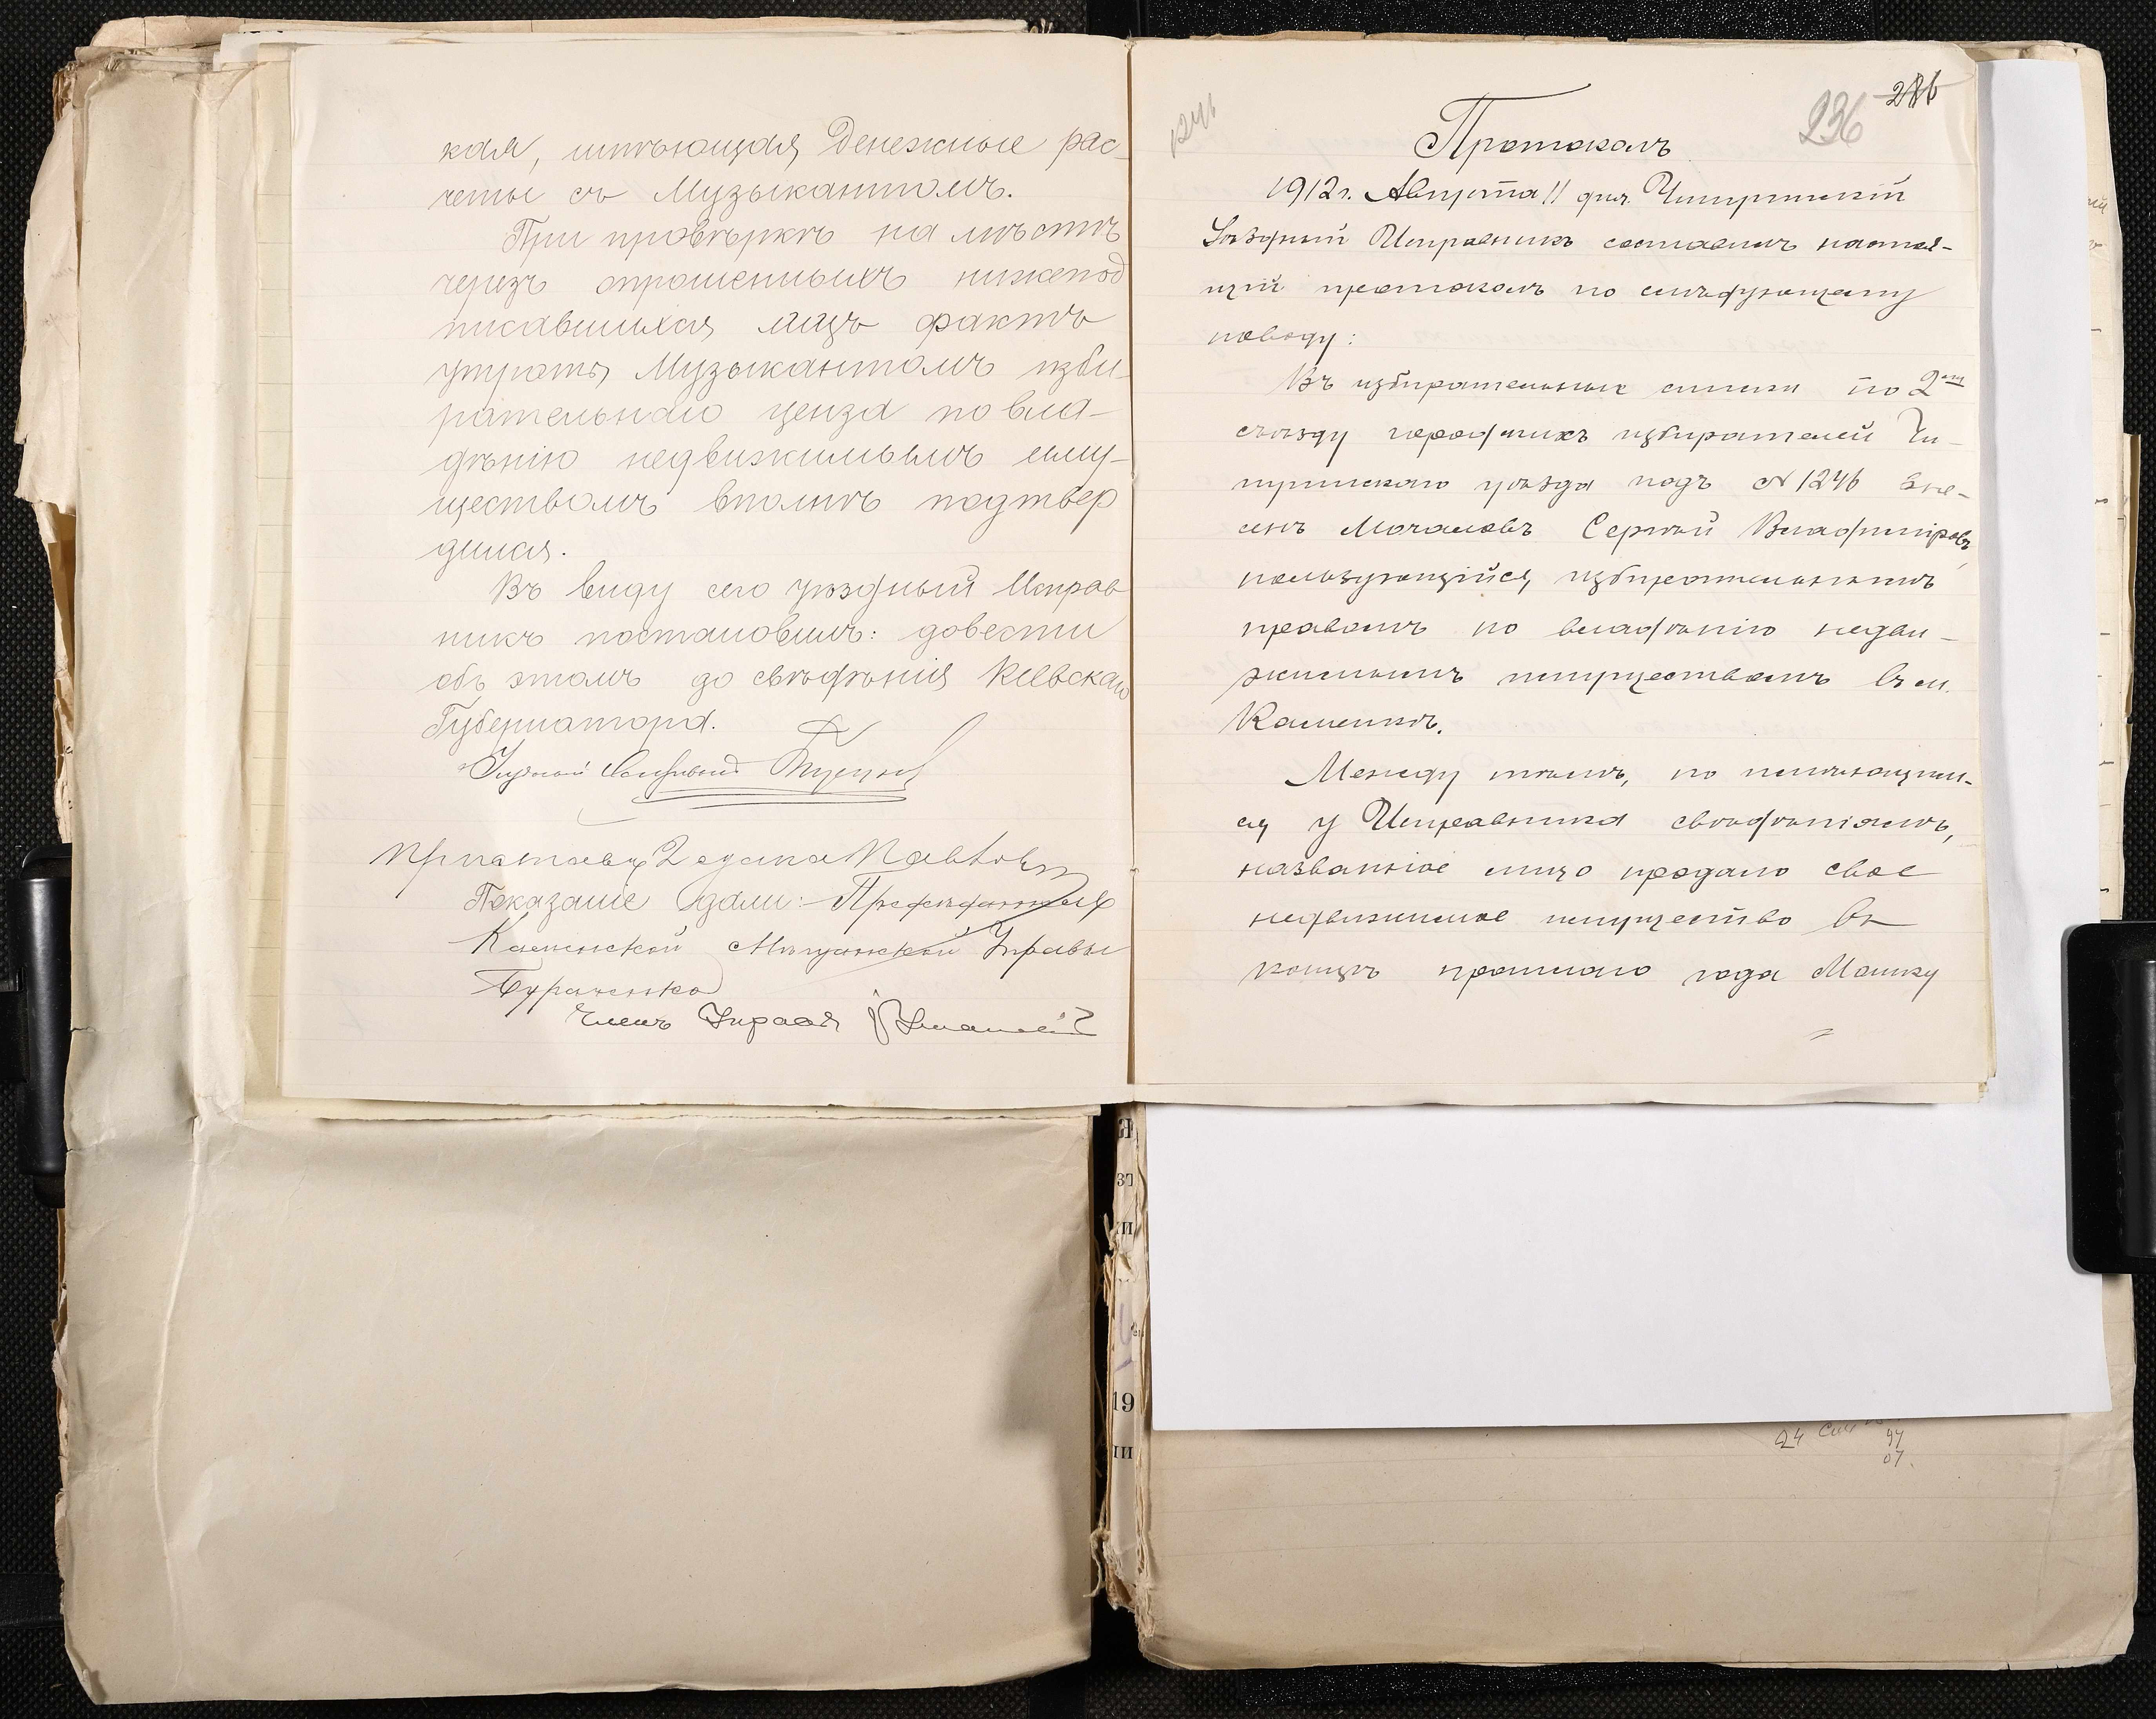 кая, имѣющая денежные рас-
четы съ Музыкантомъ.
При провѣркѣ на мѣстѣ
черезъ опрошенныхъ нижепод
писавшихся лицъ фактъ
утраты Музыкантомъ изби-
рательнаго ценза по вла-
дѣнію недвижимымъ иму-
ществомъ вполнѣ подтвер
дился.
Въ виду сего уѣздный Исправ
никъ постановилъ: довести
объ этомъ до свѣдѣнія Кіевскаго
Губернатора.
Уѣздный Исправникъ
Показаніе дали: Предсѣдатель
Каменской Мѣщанской Управы
Бураченко
Членъ Управы
1246
236 286
Протоколъ
1912 г. Августа 11 дня. Чигиринскій
Уѣздный Исправникъ составилъ настоя-
щій протоколъ по слѣдующему
поводу:
Въ избирательные списки по 2му
съѣзду городскихъ избирателей Чи-
гиринскаго уѣзда подъ № 1246 вне-
сенъ Мочаловъ Сергѣй Владиміровъ,
пользующійся избирательнымъ
правомъ по владѣнію недви-
жимымъ имуществомъ въ м.
Каменкѣ.
Между тѣмъ, по имѣющим-
ся у Исправника свѣдѣніямъ,
названное лицо продало свое
недвижимое имущество въ
концѣ прошлаго года Мошку
19
24
94
07.